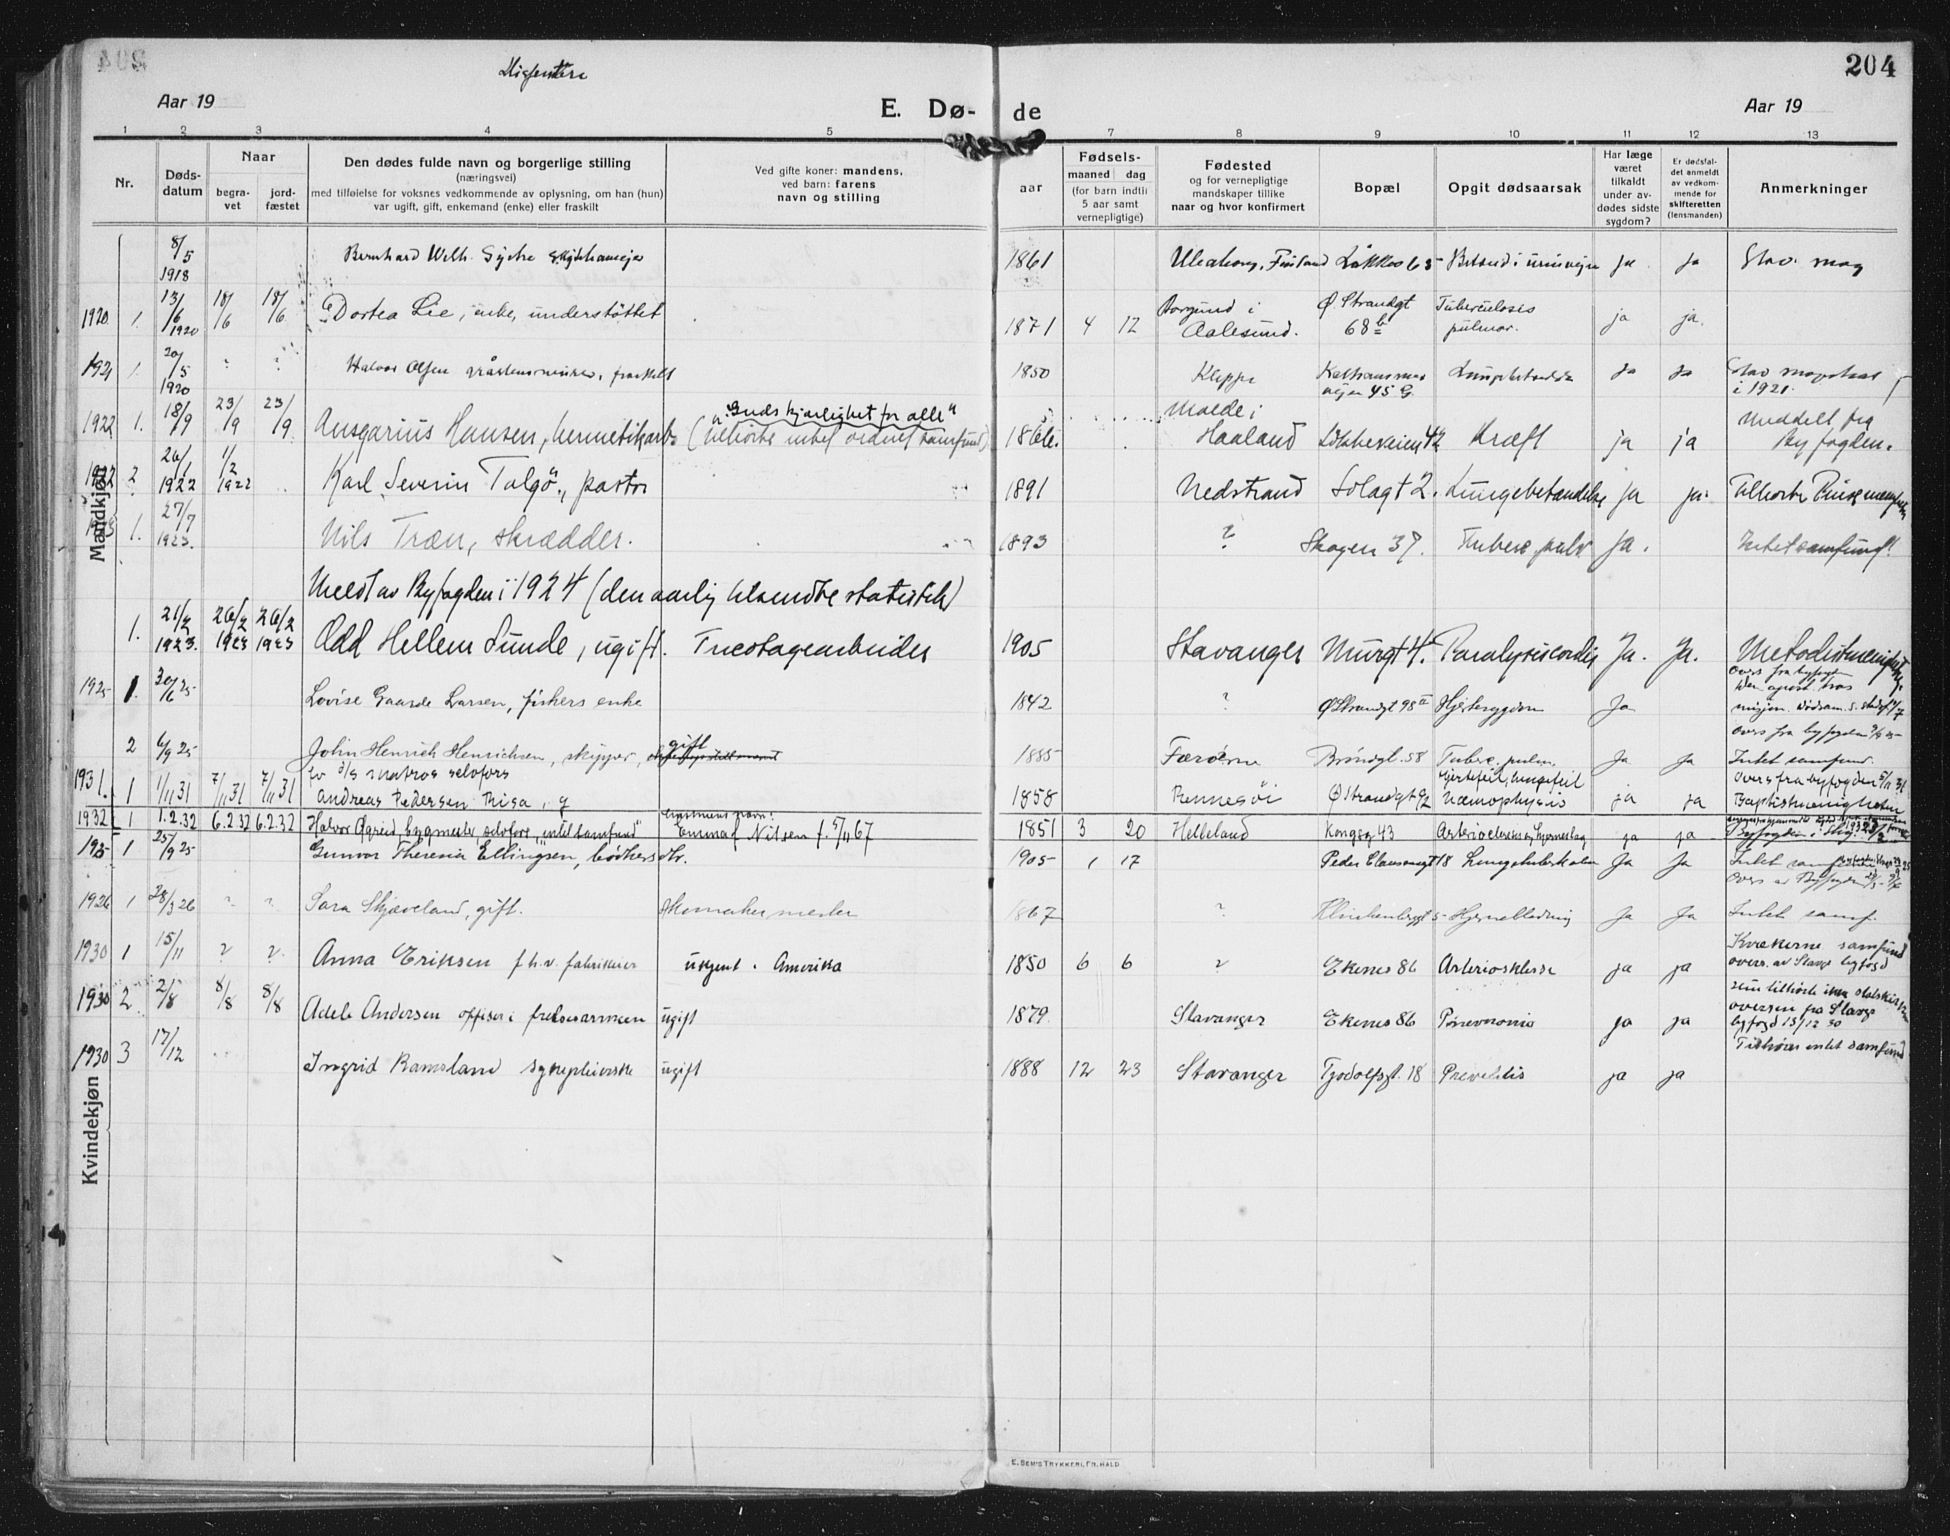 204
Aar 19
E. Dø- de
Aar 19
1 2 3 4 5 7 8 9 10 11 12 13
Nr.
Døds-
datum
Naar
begra-
vet
jord-
fæstet
Den dødes fulde navn og borgerlige stilling
(næringsvei)
med tilføielse for voksnes vedkommende av oplysning, om han (hun)
var ugift, gift, enkemand (enke) eller fraskilt
Ved gifte koner: mandens,
ved barn: farens
navn og stilling
aar
Fødsels-
maaned dag
(for barn indtil
5 aar samt
vernepligtige)
Fødested
og for vernepligtige
mandskaper tillike
naar og hvor konfirmert
Bopæl
Opgit dødsaarsak
Har læge
været
tilkaldt
under av-
dødes sidste
sygdom?
Er dødsfal-
det anmeldt
av vedkom-
mende for
skifteretten
(lensmanden)
Anmerkninger
Mandkjøn
8/5 1918 Bernhard Wilh. 1861 ja ja Stav. mag
1920 1. 13/6 1920 18/6 18/6 Dortea Lie, enke, understøttet 1871 4 12 Borgund i Aalesund. Ø Strandgt 68b Tuberculosis pulmon. ja ja.
1921 1. 20/5 1920 ? ? Halvor Olsen fraskilt 1850 Kleppe 45 Ja Ja Stav magistrat i 1921.
1922 1. 18/9 23/9 23/9 Ansgarius Hansen, hermetikarb. "Guds kjærlighet for alle" Haaland Løkkeveien 42 Kræft ja ja Meddelt fra Byfogden.
1922 2 26/1 1922 1/2 1922 Karl Severin Talgö, pastor 1891 Nedstrand Solagt 2. Lungebetændelse ja ja. Tilhørte Pinsemenigheten
1923 1. 27/7 1923. Nils Træn, skrædder. 1893 ? Skagen 37. Tuberc. pulm Ja. Intet samfund!
Meldt av Byfogden i 1924 (den aarlig tilsendte statistik)
1. 21/2 1923. 26/2 1923 26/2 1923 Odd Hellem Sunde, ugift. Tricotagearbeider 1905 Stavanger Murgt 4. Paralysis cordis Ja. Ja. Metodistmenighet
1925 1. 30/6 25 Lovise Gaarde Larsen, fiskers enke 1842 ? Ø Strandgt 98 Hjertesygdom Ja
2 6/9 25 John Henrich Henrichsen, skipper, gift 1855 Færöerne Bröndgt. 58 Tuberc. pulm. Ja Ja Intet samfund.
1931. 1 1/11 31 7/11 31 7/11 31 Andreas Pedersen Risa, g 1858 Rennesöi Ø Strandgt 92 Hjertefeil, lungefeil Hæmophysis ja ja Overs fra byfogden 5/11 31 Baptistmenigheten
1932 1 1.2.32 6.2.32 6.2.32 Halvor Ogreid, bygmester, selvfors, "intet samfund" Emma f. Nilsen f. 5/11 67 1851 3 20 Helleland Kongsg 43 ja ja
1925 1 25/9 25 Gunvor Theresia Ellingsen, bötkers dtr. 1905 1 17 Peder Clausøngt 18 Lungetuberkulose Ja Ja
1926 1 28/3 26 ? ? Sara Skjæveland, gift. skomakermester 1867 ? Klinkenberggt 5 Hjerneblödning Ja Ja Intet samf.
1930 1 15/11 ? ? Anna Eriksen f.h.v. fabrikeier ukjent i Amerika 1850 6 6 ? Ekenes 86 Arteriosklerose ja ja Kvækerne samfund overs. av Stavgr byfogd
1930 2 2/8 8/8 8/8 Adele Andersen offiser i frelsesarmeen ugift 1879 Stavanger Ekenes 86 Pnevmonia ja ja Hun tilhörte ikke statskirken oversen fra Stavgr byfogd 13/12 30
1930 3 17/12 Ingrid Ramsland sykepleierske ugift 1888 12 23 Stavanger Tjodolfsgt. 18 ja ja Tilhörer intet samfund
Kvindekjøn
E. SEM'S TRYKKERI, FR. HALD